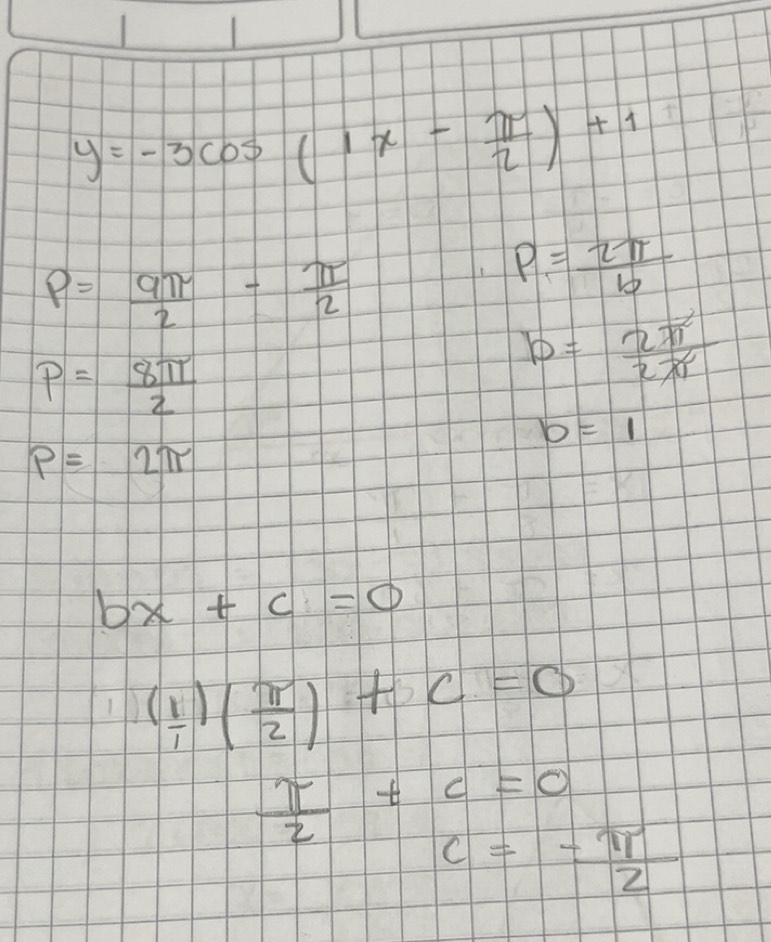 y = -3cos (1x - π/2) + 1
P = 9π/2 - π/2
P = 8π/2
P = 2π
P = 2π/b
b = 2π/2π
b = 1
bx + c = 0
(1/1)(π/2) + c = 0
π/2 + c = 0
c = -π/2